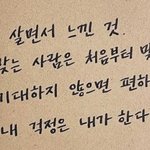 살면서 느낀 것.
맞는 사람은 처음부터
기대하지 않으면 편하
내 걱정은 내가 한다